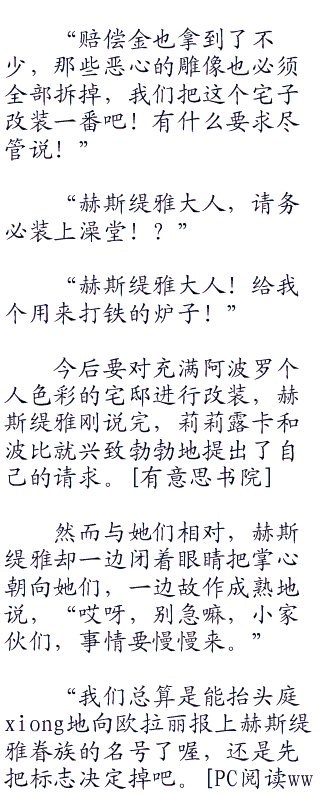 “赔偿金也拿到了不
少，那些恶心的雕像也必须
全部拆掉，我们把这个宅子
改装一番吧！有什么要求尽
管说！”
“赫斯缇雅大人，请务
必装上澡堂！？”
“赫斯缇雅大人！给我
个用来打铁的炉子！”
今后要对充满阿波罗个
人色彩的宅邸进行改装，赫
斯缇雅刚说完，莉莉露卡和
波比就兴致勃勃地提出了自
己的请求。[有意思书院]
然而与她们相对，赫斯
缇雅却一边闭着眼睛把掌心
朝向她们，一边故作成熟地
说，“哎呀，别急嘛，小家
伙们，事情要慢慢来。”
“我们总算是能抬头庭
xiong地向欧拉丽报上赫斯缇
雅眷族的名号了喔，还是先
把标志决定掉吧。[PC阅读ww